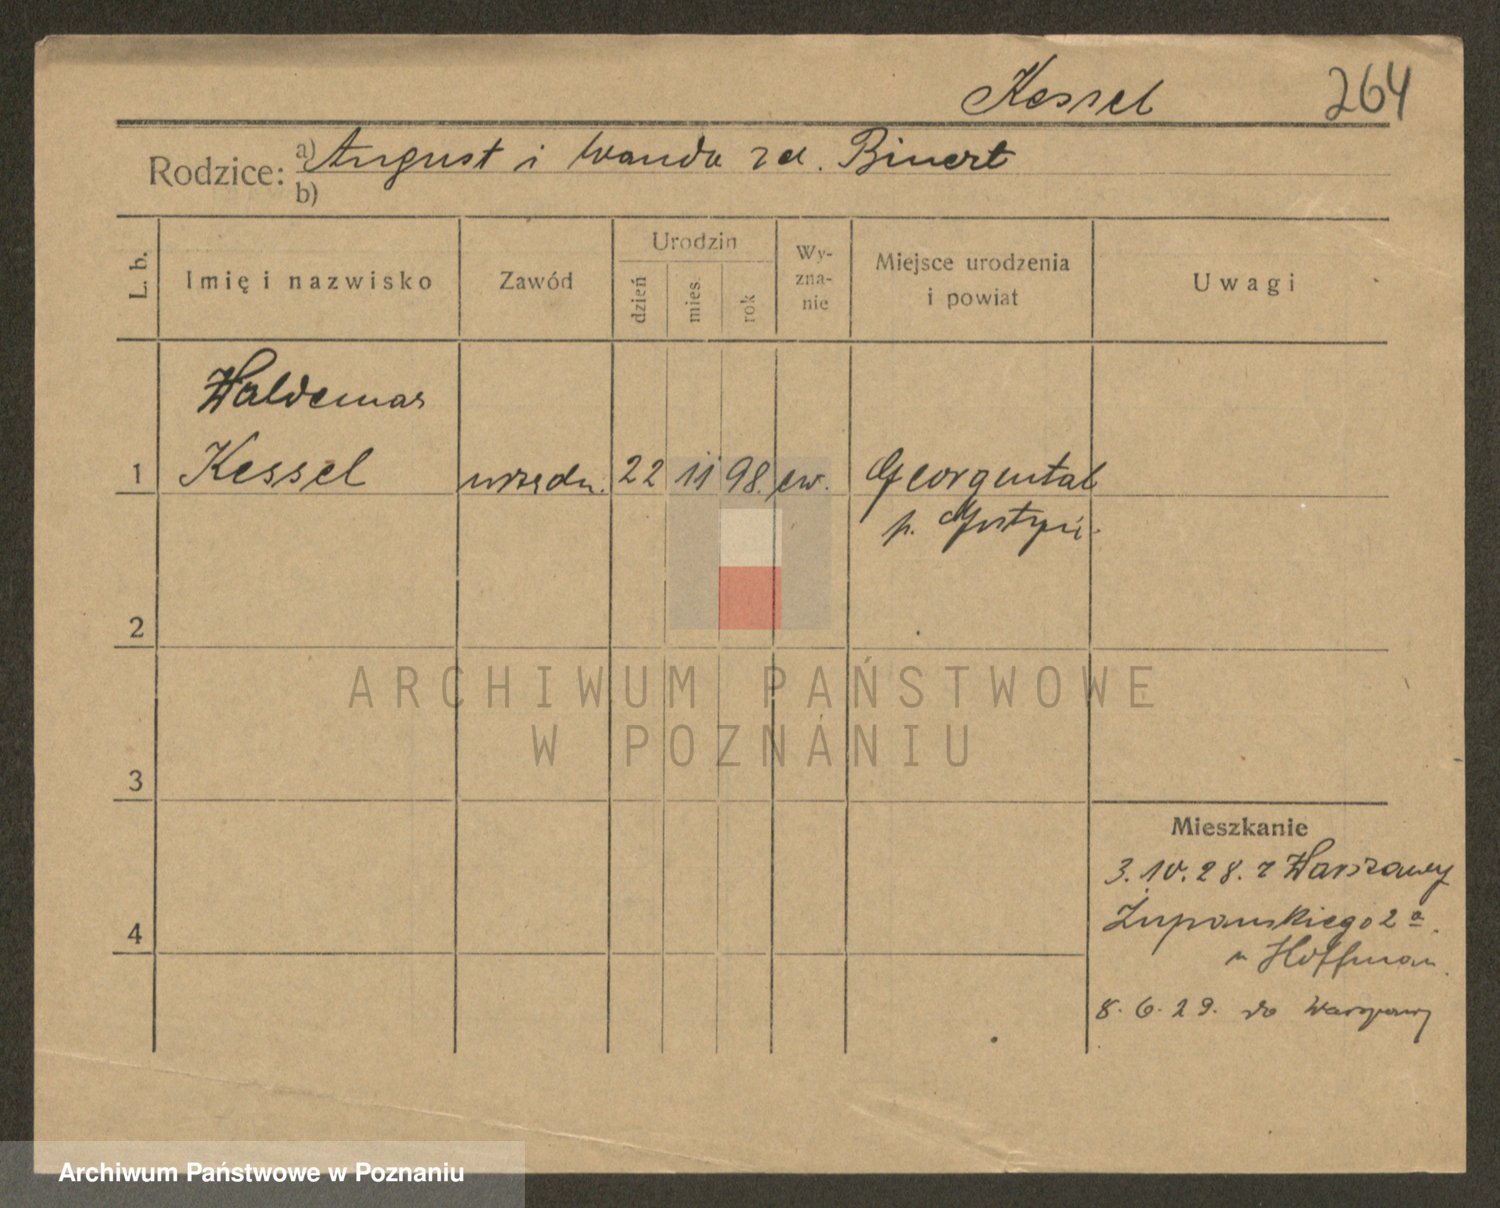 Kessel 264
Rodzice: a) August i Wanda zd. Binert
b)
L. b. Imię i nazwisko Zawód Urodzin dzień mies. rok Wy-zna-nie Miejsce urodzenia i powiat Uwagi
Waldemar
1 Kessel urzędn. 22 11 98. ew. Georgental
p. Gostyń.
2
ARCHIWUM PAŃSTWOWE
W POZNANIU
3
Mieszkanie
3.10.28. z Warszawy
4 Żupańskiego 2a.
u Hoffman.
8.6.29. do Warszawy
Archiwum Państwowe w Poznaniu